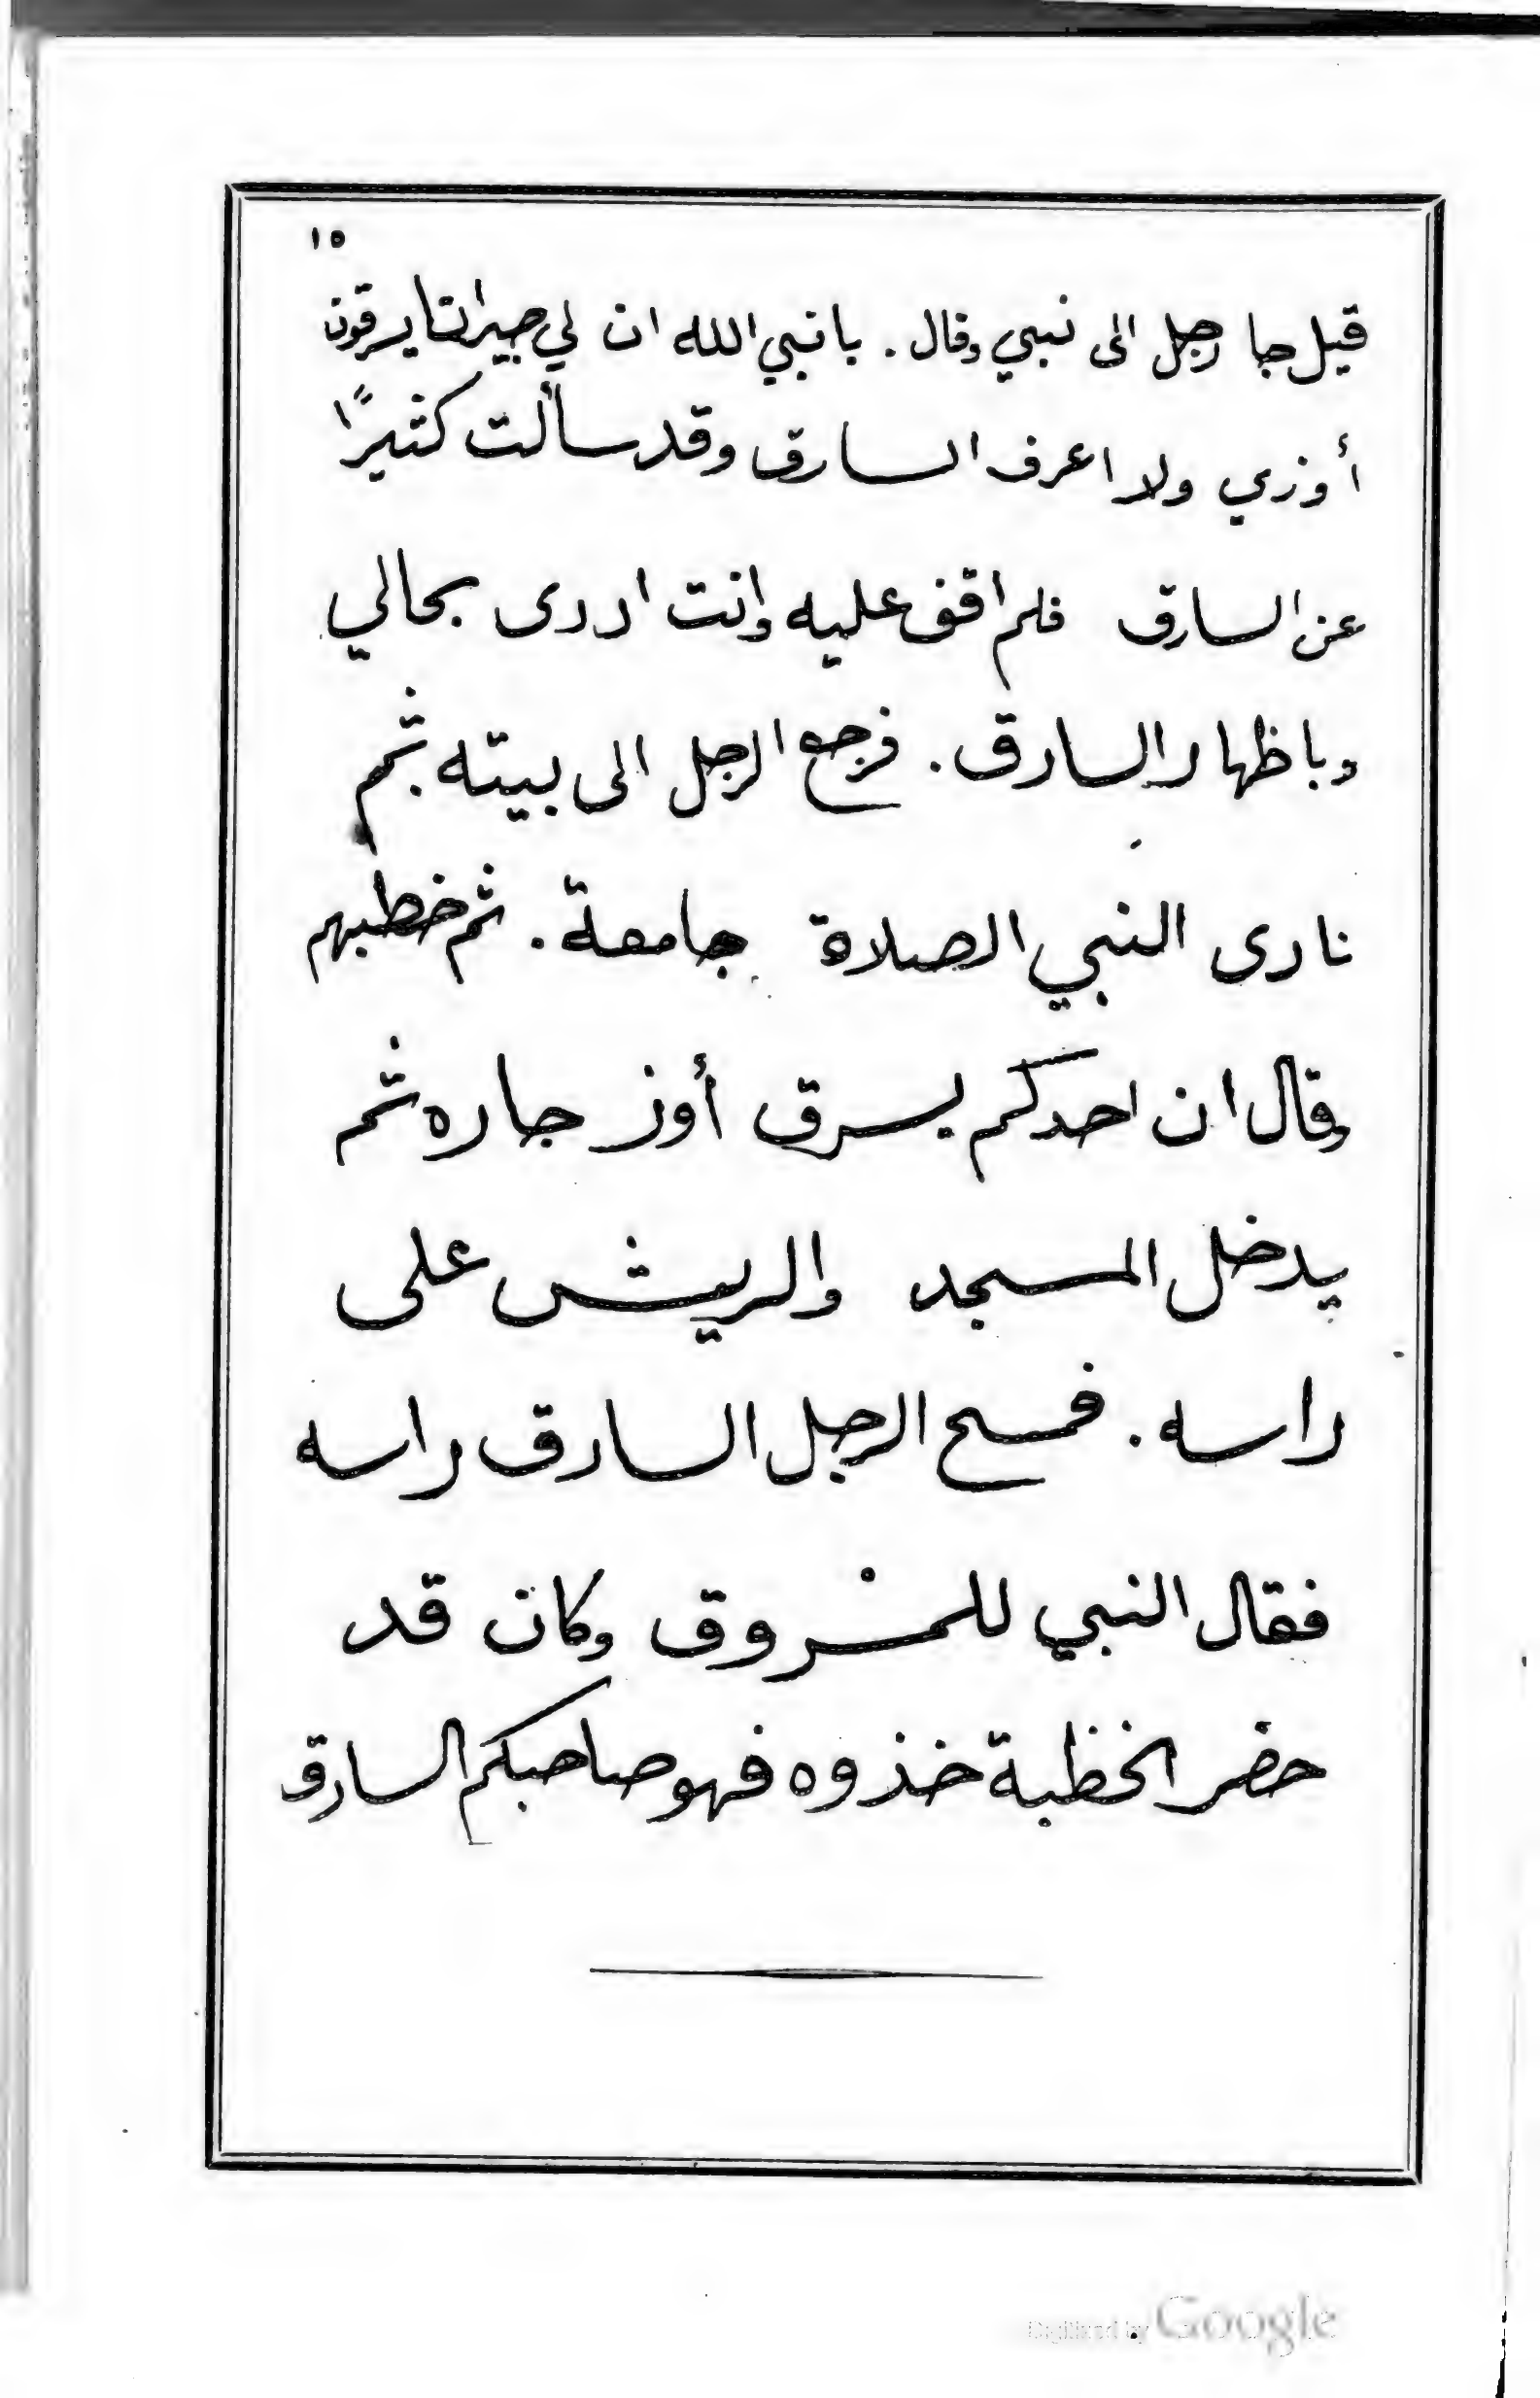 ١٥
قيل جا رجل الى نبي وقال . يا نبي الله ان لي جيرانا يرقون
أوزي ولا اعرف السارق وقد سألت كثيرًا
عن السارق فلم اقف عليه وانت ادرى بحالي
وباظهار السارق . فرجع الرجل الى بيته ثم
نادى النبي الصلاة جامعة . ثم خطبهم
وقال ان احدكم يسرق أوز جاره ثم
يدخل المسجد والريش على
راسه . فمسح الرجل السارق راسه
فقال النبي للمسروق وكان قد
حضر الخطبة خذوه فهو صاحبكم السارق
Digitized by Google